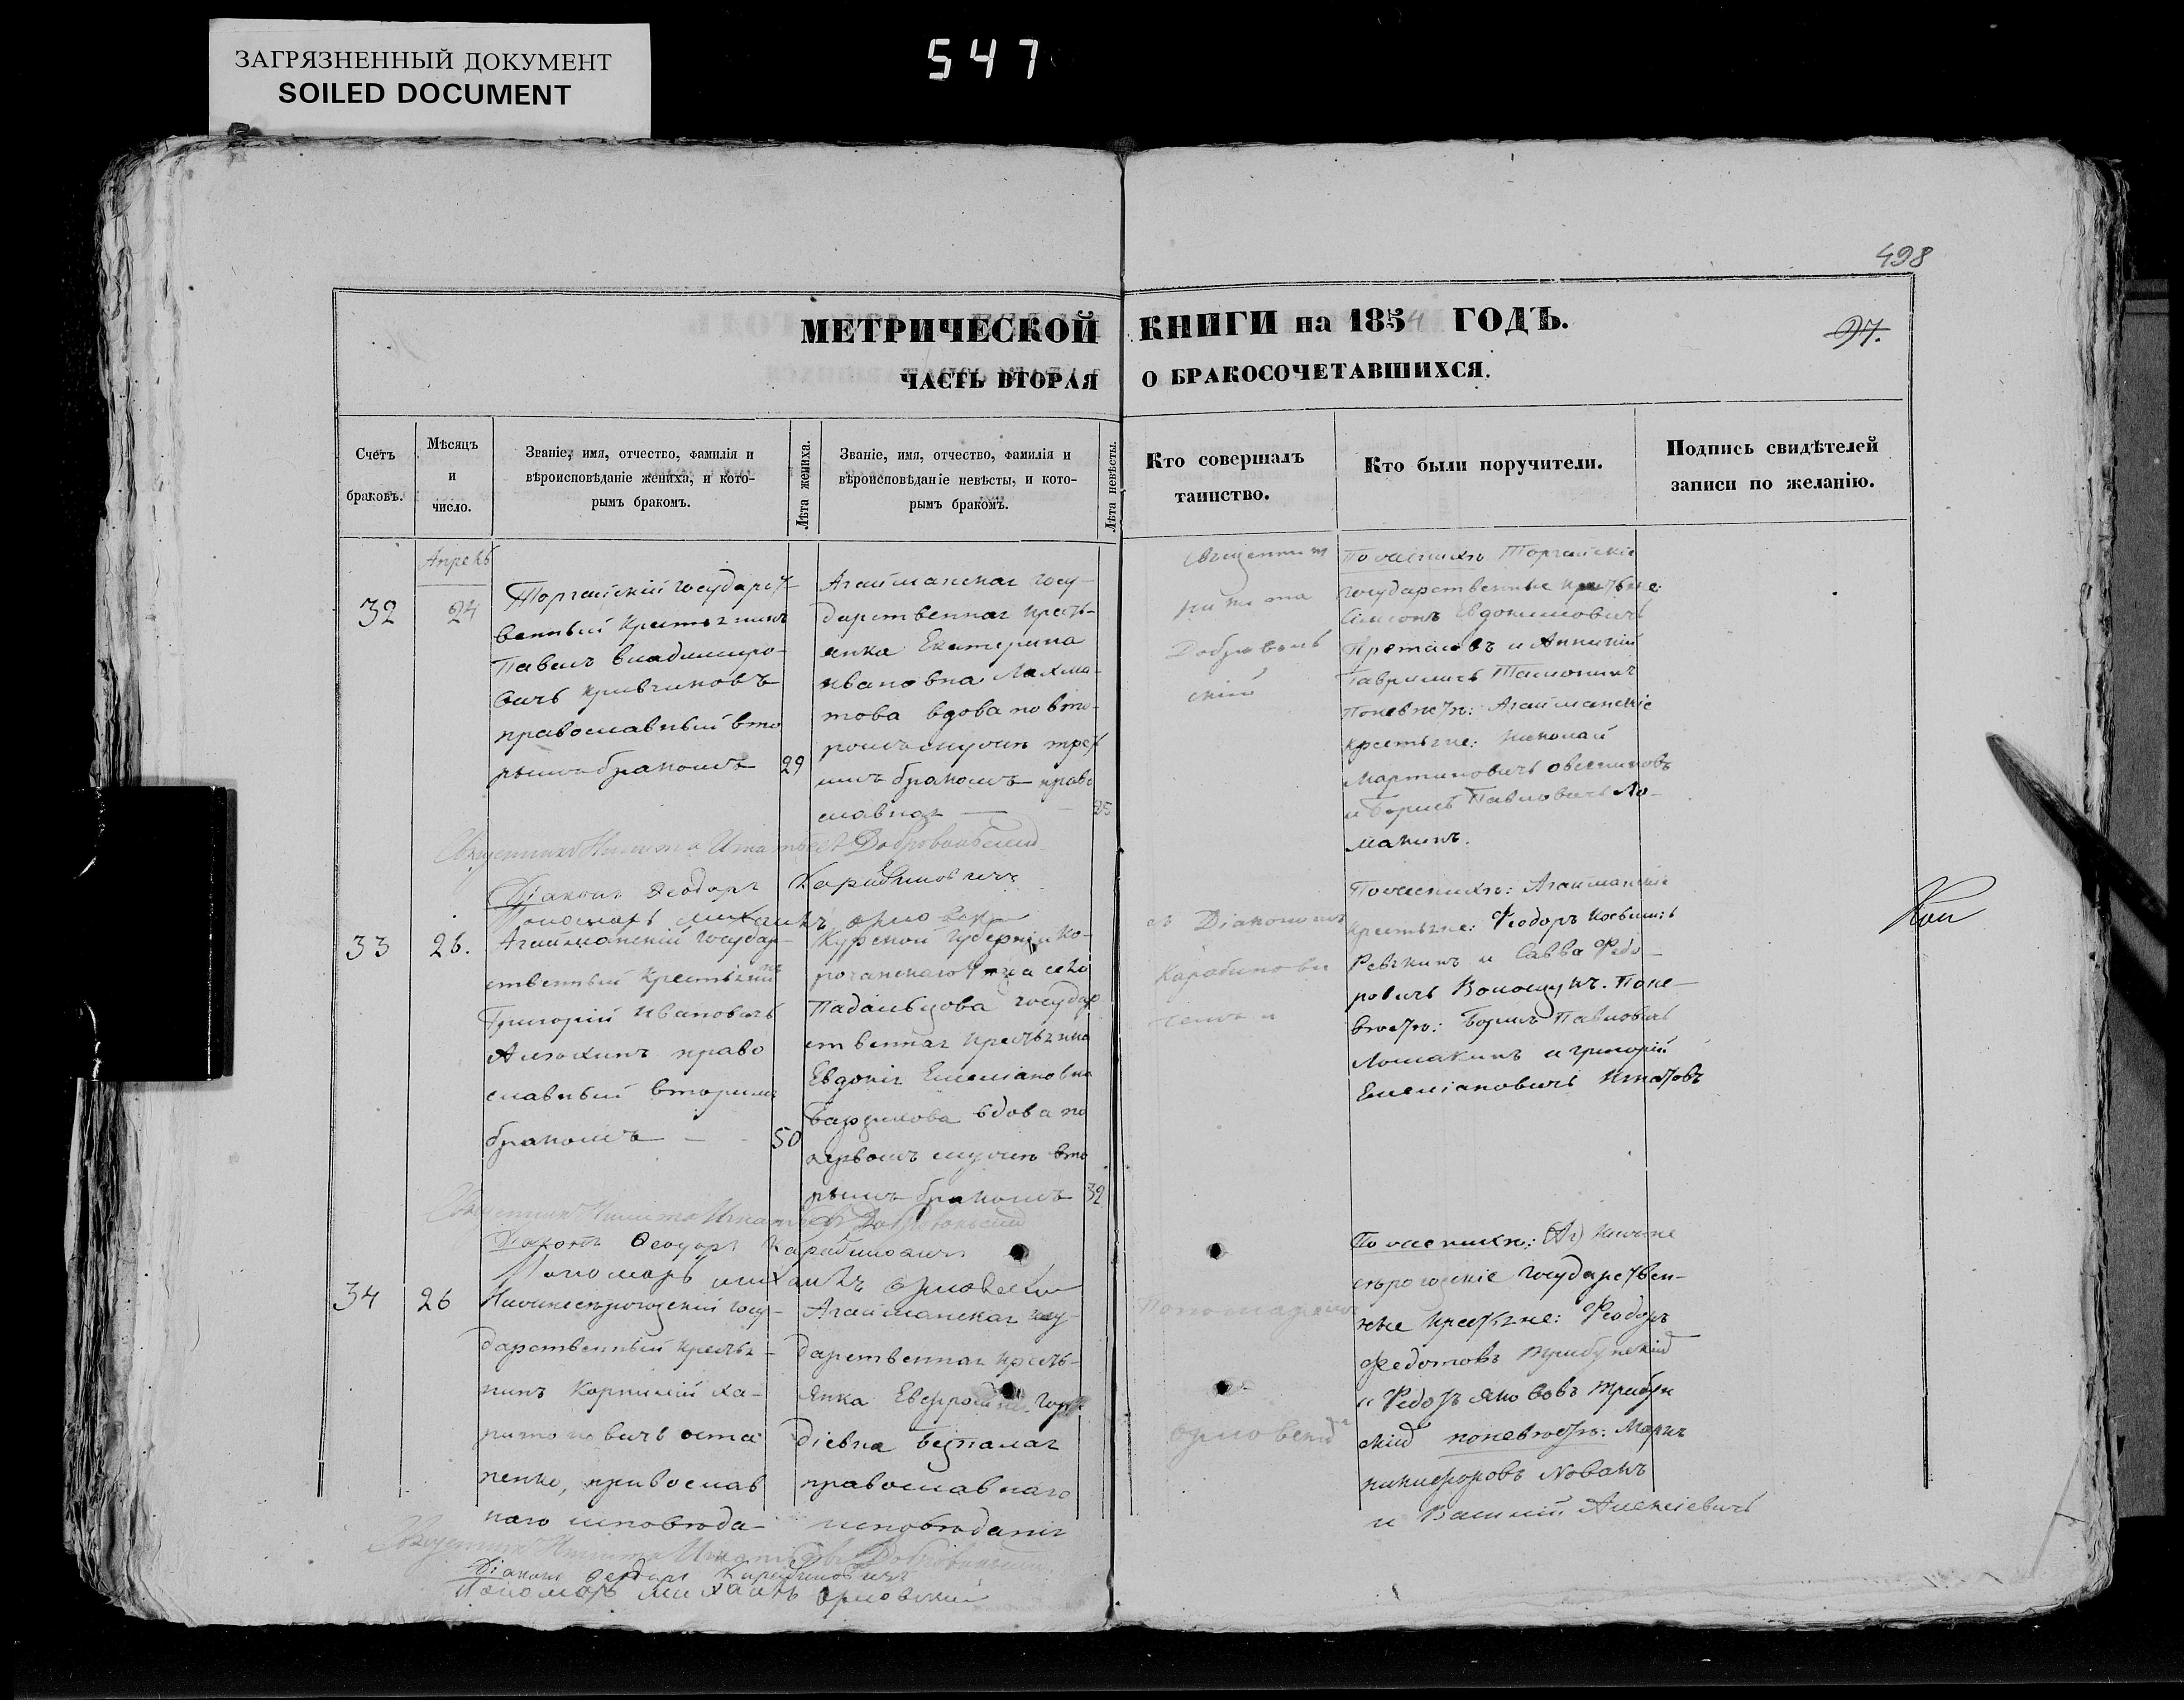 ЗАГРЯЗНЕННЫЙ ДОКУМЕНТ
SOILED DOCUMENT
547
498
МЕТРИЧЕСКОЙ КНИГИ на 1854 ГОДЪ.
97.
ЧАСТЬ ВТОРАЯ О БРАКОСОЧЕТАВШИХСЯ.
Счетъ
браковъ.
Мѣсяцъ
и
число.
Званіе, имя, отчество, фамилія и
вѣроисповѣданіе жениха, и кото-
рымъ бракомъ.
Лѣта жениха.
Званіе, имя, отчество, фамилія и
вѣроисповѣданіе невѣсты, и кото-
рымъ бракомъ.
Лѣта невѣсты.
Кто совершалъ
таинство.
Кто были поручители.
Подпись свидѣтелей
записи по желанію.
Апрель
32
24
Торгайскій государст-
венный крестьянинъ
Павелъ Владимиро-
вичь
православный вто
рымъ бракомъ
29
Агайманская госу-
дарственная кресть-
янка Екатерина
Ивановна Лахма-
това вдова по вто-
ромъ мужѣ трет
имъ бракомъ право
славная
25
Священник
Никита
Добровол
скій
По женихѣ Торгайскіе
государственные крестьяне:
Симеонъ Евдокимовичь
Протасовъ и
Гавриловъ
По невѣстѣ: Агайманскіе
крестьяне: Николай
Мартиновичь Овсянниковъ
и Борисъ Павловичь Ло-
макинъ.
Священникъ Никита Игнатьевъ Добровольский
Діаконъ Феодоръ Карабиновичъ
Пономарь Михаилъ Орловски
33
26.
Агайманскій государ-
ственный крестьянинъ
Григорій Ивановичь
Алехинъ право
славный вторымъ
бракомъ
50
Курской губерніи Ко-
рочанскаго села
государ
ственная крестьянка
Евдокія Емеліановна
вдова по
первомъ мужѣ вто
рымъ бракомъ
32
съ Діакономъ
Карабинови
чемъ и
По женихѣ: Агайманскіе
крестьяне: Феодоръ
Ревякинъ и Савва Федо-
ровичь По не-
вѣстѣ: Борисъ Павловичь
Ломакинъ и Григорій
Емеліановичь Игнатовъ
Священник Никита Игнатьевъ Добровольский
Діаконъ Феодоръ Карабиновичъ
Пономарь Михаилъ Орловский
34
26
Нижнесѣрогозскій госу-
дарственный крестья-
нинъ Корнилій Ха-
ритоновичь Оста
пенко, православ
наго исповѣда-
Агайманская госу-
дарственная кресть-
янка
діевна Безпалая
православнаго
исповѣданія
Пономаремъ
Орловскимъ
По женихѣ: Нижне
сѣрогозскіе государствен-
ные крестьяне: Феодоръ
Федотовъ
и Федоръ Якововъ
скій по невѣстѣ:
Никифоровъ
и Василій Алексіевичь
Священник Никита Игнатьевъ Добровольский
Діаконъ Феодоръ Карабиновичъ
Пономарь Михаилъ Орловский